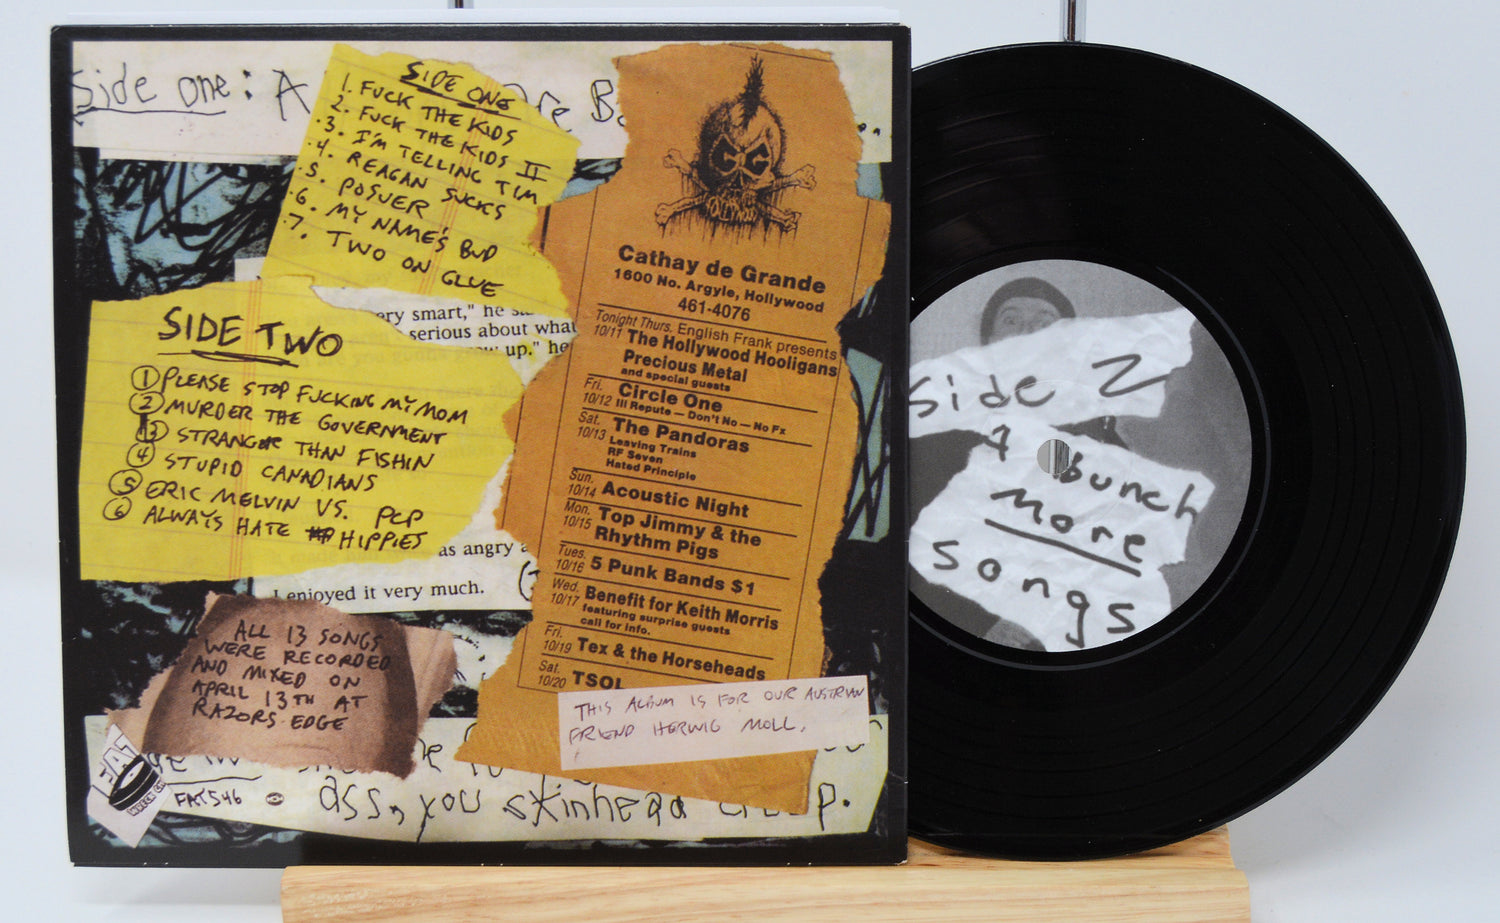 Side one: A
SIDE ONE
1. FUCK THE KIDS
2. FUCK THE KIDS II
.3. I'M TELLING TIM
.4. REAGAN SUCKS
.5. POSUER
.6. MY NAME'S BUD
.7. TWO ON GLUE
SIDE TWO
1 PLEASE STOP FUCKING MY MOM
2 MURDER THE GOVERNMENT
3 STRANGER THAN FISHIN
4 STUPID CANADIANS
5 ERIC MELVIN VS. PCP
6 ALWAYS HATE HIPPIES
ery smart," he
serious about what
up." he
as angry
I enjoyed it very much.
ALL 13 SONGS
WERE RECORDED
AND MIXED ON
APRIL 13TH AT
RAZORS EDGE
FAT
WRECK CH
FAT546
ass, you skinhead
Cathay de Grande
1600 No. Argyle, Hollywood
461-4076
Tonight Thurs. English Frank presents
10/11 The Hollywood Hooligans
Precious Metal
and special guests
Fri. 10/12 Circle One
Ill Repute — Don't No — No Fx
Sat. 10/13 The Pandoras
Leaving Trains
RF Seven
Hated Principle
Sun. 10/14 Acoustic Night
Mon. 10/15 Top Jimmy & the
Rhythm Pigs
Tues. 10/16 5 Punk Bands $1
Wed. 10/17 Benefit for Keith Morris
featuring surprise guests
call for info.
Fri. 10/19 Tex & the Horseheads
Sat. 10/20 TSOL
THIS ALBUM IS FOR OUR AUSTRIAN
FRIEND HERWIG MOLL.
Side 2
A bunch
more
songs